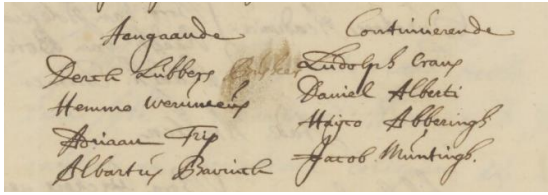 Aangaande
Derck Lubbers
Hemmo Wermmeus
Adriaan Trip
Albartus Bavinck
Continuerende
Ludolph Crans
Daniel Alberti
Hajco Abbering
Jacob Muntingh.